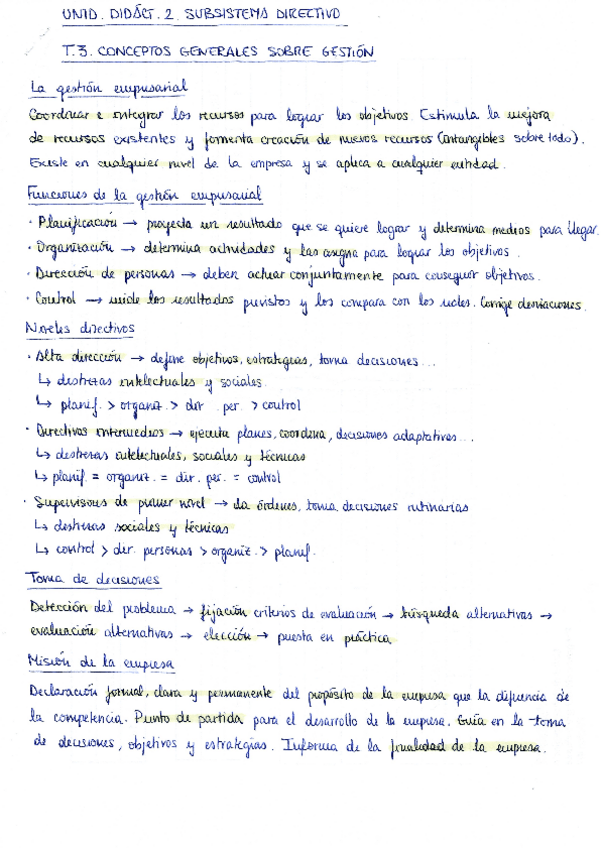 UNID. DIDÁCT. 2. SUBSISTEMA DIRECTIVO
T.3. CONCEPTOS GENERALES SOBRE GESTIÓN
La gestión empresarial
Coordinar e integrar los recursos para lograr los objetivos. Estimula la mejora
de recursos existentes y fomenta creación de nuevos recursos (intangibles sobre todo).
Existe en cualquier nivel de la empresa y se aplica a cualquier entidad.
Funciones de la gestión empresarial
· Planificación → proyecta un resultado que se quiere lograr y determina medios para llegar.
· Organización → determina actividades y las asigna para lograr los objetivos.
· Dirección de personas → deben actuar conjuntamente para conseguir objetivos.
· Control → mide los resultados previstos y los compara con los reales. Corrige desviaciones.
Niveles directivos
· Alta dirección → define objetivos, estrategias, toma decisiones...
↳ destrezas intelectuales y sociales.
↳ planif. > organiz. > dir. per. > control
· Directivos intermedios → ejecuta planes, coordina, decisiones adaptativas...
↳ destrezas intelectuales, sociales y técnicas
↳ planif. = organiz. = dir. per. = control
· Supervisores de primer nivel → da órdenes, toma decisiones rutinarias
↳ destrezas sociales y técnicas
↳ control > dir. personas > organiz. > planif.
Toma de decisiones
Detección del problema → fijación criterios de evaluación → búsqueda alternativas →
evaluación alternativas → elección → puesta en práctica
Misión de la empresa
Declaración formal, clara y permanente del propósito de la empresa que la diferencia de
la competencia. Punto de partida para el desarrollo de la empresa. Guía en la toma
de decisiones, objetivos y estrategias. Informa de la finalidad de la empresa.